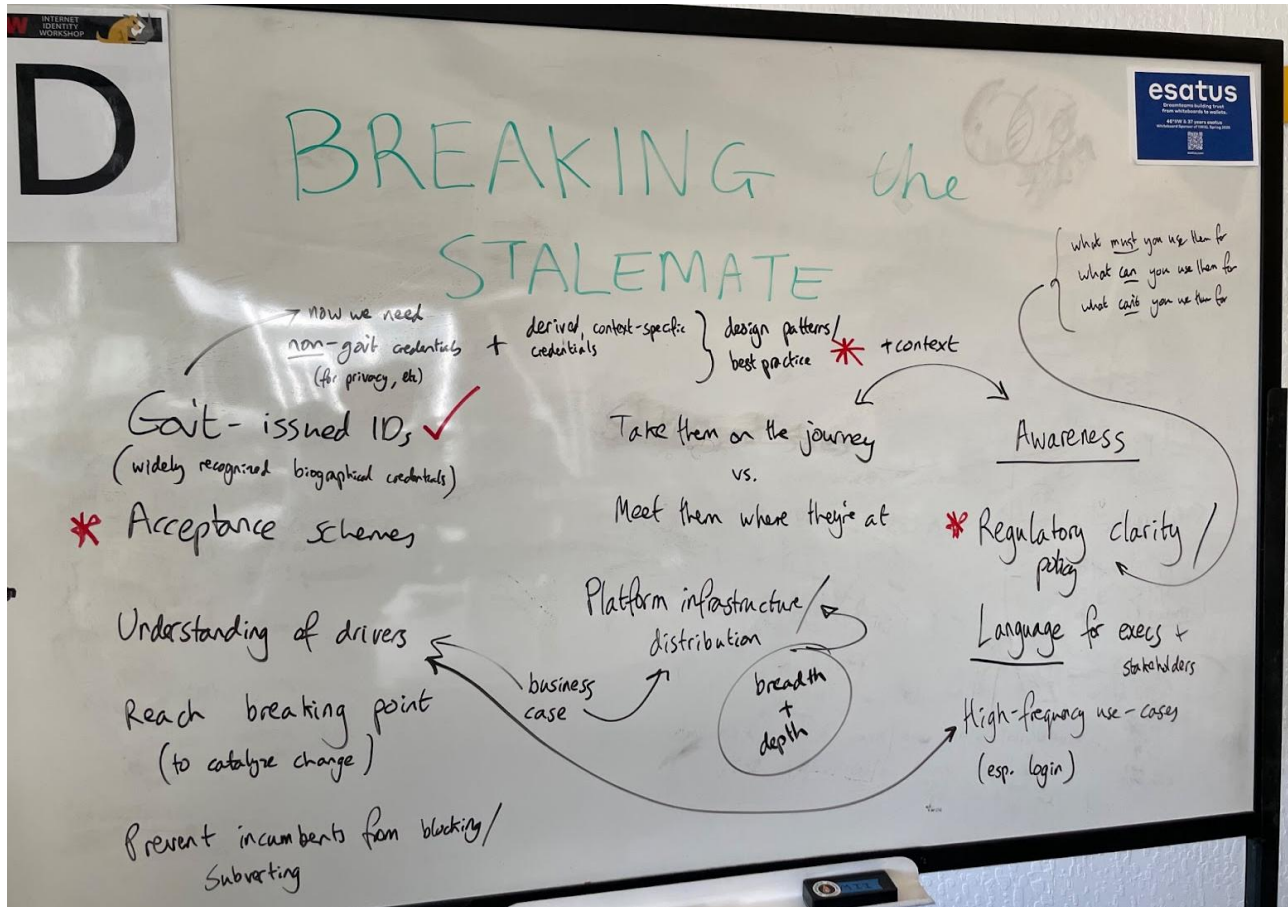 INTERNET
IDENTITY
WORKSHOP
D
esatus
Dreamteams building trust
from whiteboards to wallets.
BREAKING the
STALEMATE
what must you use them for
what can you use them for
what can't you use them for
now we need
non-gov't credentials
(for privacy, etc)
+
derived, context-specific
credentials
design patterns/
best practice
* + context
Gov't-issued IDs ✓
(widely recognized biographical credentials)
* Acceptance schemes
Understanding of drivers
Reach breaking point
(to catalyze change)
Prevent incumbents from blocking/
subverting
Take them on the journey
vs.
Meet them where they're at
Platform infrastructure/
distribution
business
case
breadth
+
depth
Awareness
* Regulatory clarity/
policy
Language for execs +
stakeholders
High-frequency use-cases
(esp. login)